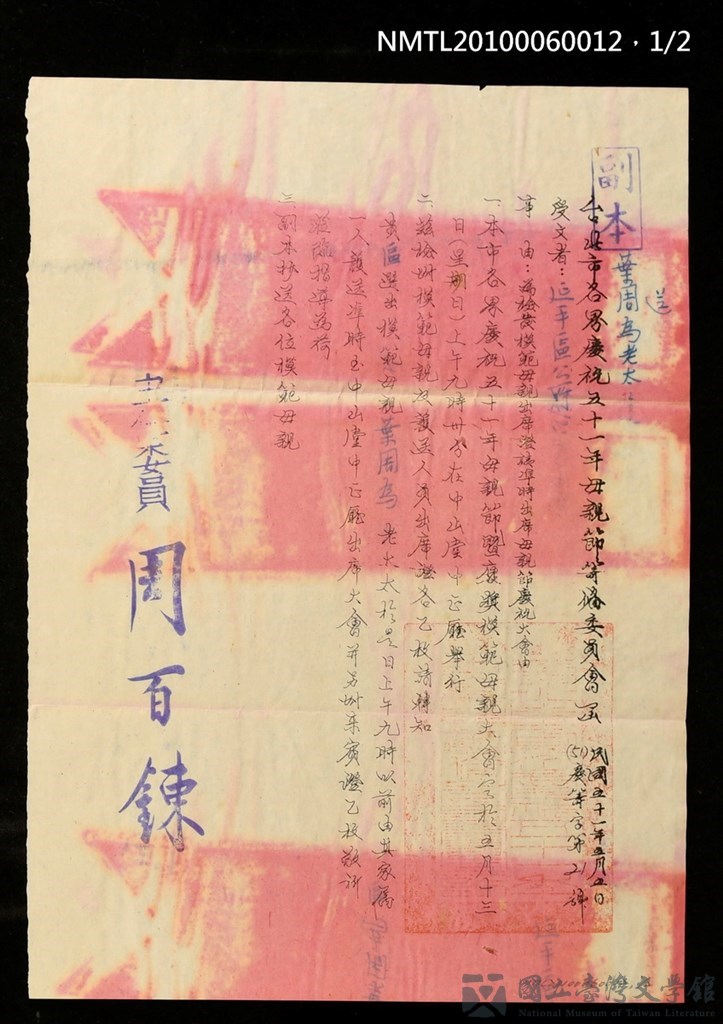 NMTL20100060012，1/2
副本
送
葉周為老太
台北市各界慶祝五十一年母親節籌備委員會函
民國五十一年五月五日
(51)慶籌字第21號
受文者：延平區公所
事由：為檢發模範母親出席證請準時出席母親節慶祝大會由
一、本市各界慶祝五十一年母親節暨慶獎模範母親大會定於五月十三
日(星期日)上午九時卅分在中山堂中正廳舉行
二、茲檢附模範母親及護送人員出席證各乙枚請轉知
貴區選出模範母親葉周為老太太於是日上午九時以前由其家屬
一人護送準時至中山堂中正廳出席大會并另附來賓證乙枚敬祈
蒞臨指導為荷
三、副本抄送各位模範母親
主任委員 周百鍊
國立臺灣文學館
National Museum of Taiwan Literature